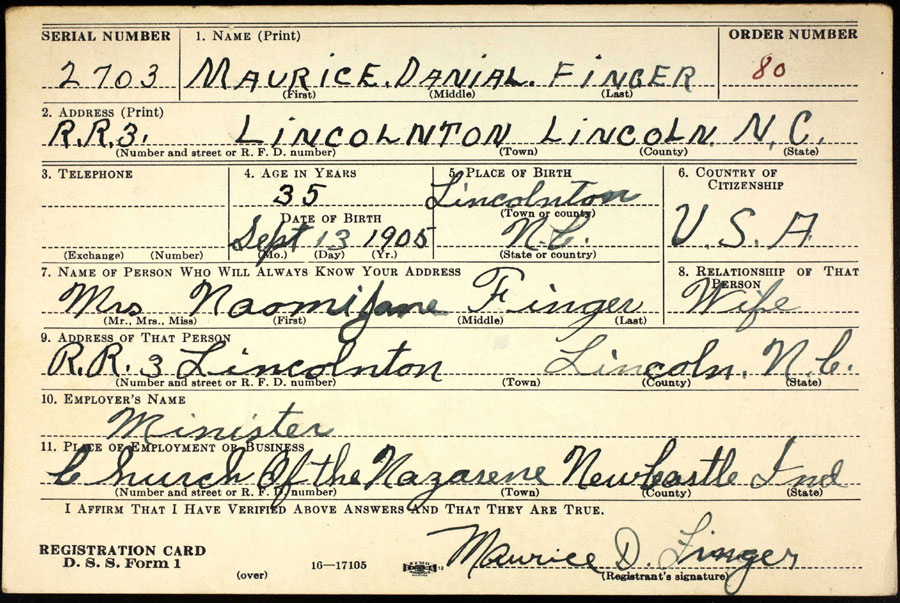 SERIAL NUMBER 1. NAME (Print) ORDER NUMBER
2703 MAURICE. DANIAL. FINGER 80
(First) (Middle) (Last)
2. ADDRESS (Print)
R.R.3. LINCOLNTON LINCOLN. N.C.
(Number and street or R. F. D. number) (Town) (County) (State)
3. TELEPHONE 4. AGE IN YEARS 5. PLACE OF BIRTH 6. COUNTRY OF CITIZENSHIP
35 Lincolnton
(Town or county)
DATE OF BIRTH
Sept 13 1905 N.C. U.S.A.
(Exchange) (Number) (Mo.) (Day) (Yr.) (State or country)
7. NAME OF PERSON WHO WILL ALWAYS KNOW YOUR ADDRESS 8. RELATIONSHIP OF THAT PERSON
Mrs Naomi Jane Finger Wife
(Mr., Mrs., Miss) (First) (Middle) (Last)
9. ADDRESS OF THAT PERSON
R.R. 3 Lincolnton Lincoln. N.C.
(Number and street or R. F. D. number) (Town) (County) (State)
10. EMPLOYER'S NAME
Minister
11. PLACE OF EMPLOYMENT OR BUSINESS
Church Of the Nazarene Newcastle Ind
(Number and street or R. F. D. number) (Town) (County) (State)
I AFFIRM THAT I HAVE VERIFIED ABOVE ANSWERS AND THAT THEY ARE TRUE.
REGISTRATION CARD
D. S. S. Form 1
(over) 16—17105
Maurice D. Finger
(Registrant's signature)